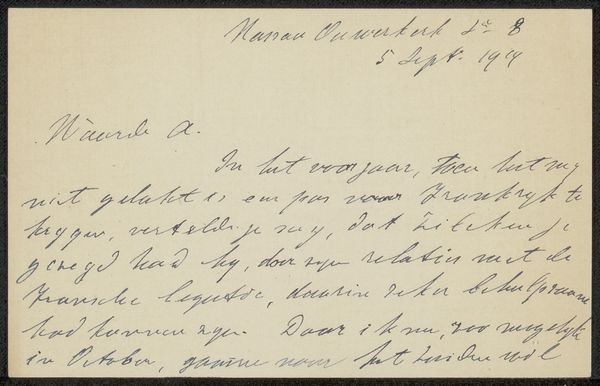 Nassau Ouwerkerk Str 8
5 Sept. 1919
Waarde A.
In het voorjaar, toen het my
niet gelukt is een pas voor Frankryk te
krygen, vertelde je my, dat Zilcken je
gezegd had hy, door zyn relaties met de
Fransche legatie, daarin zeker behulpzaam
had kunnen zyn. Daar ik nu, zoo mogelyk
in October, gaarne naar het Zuiden wil